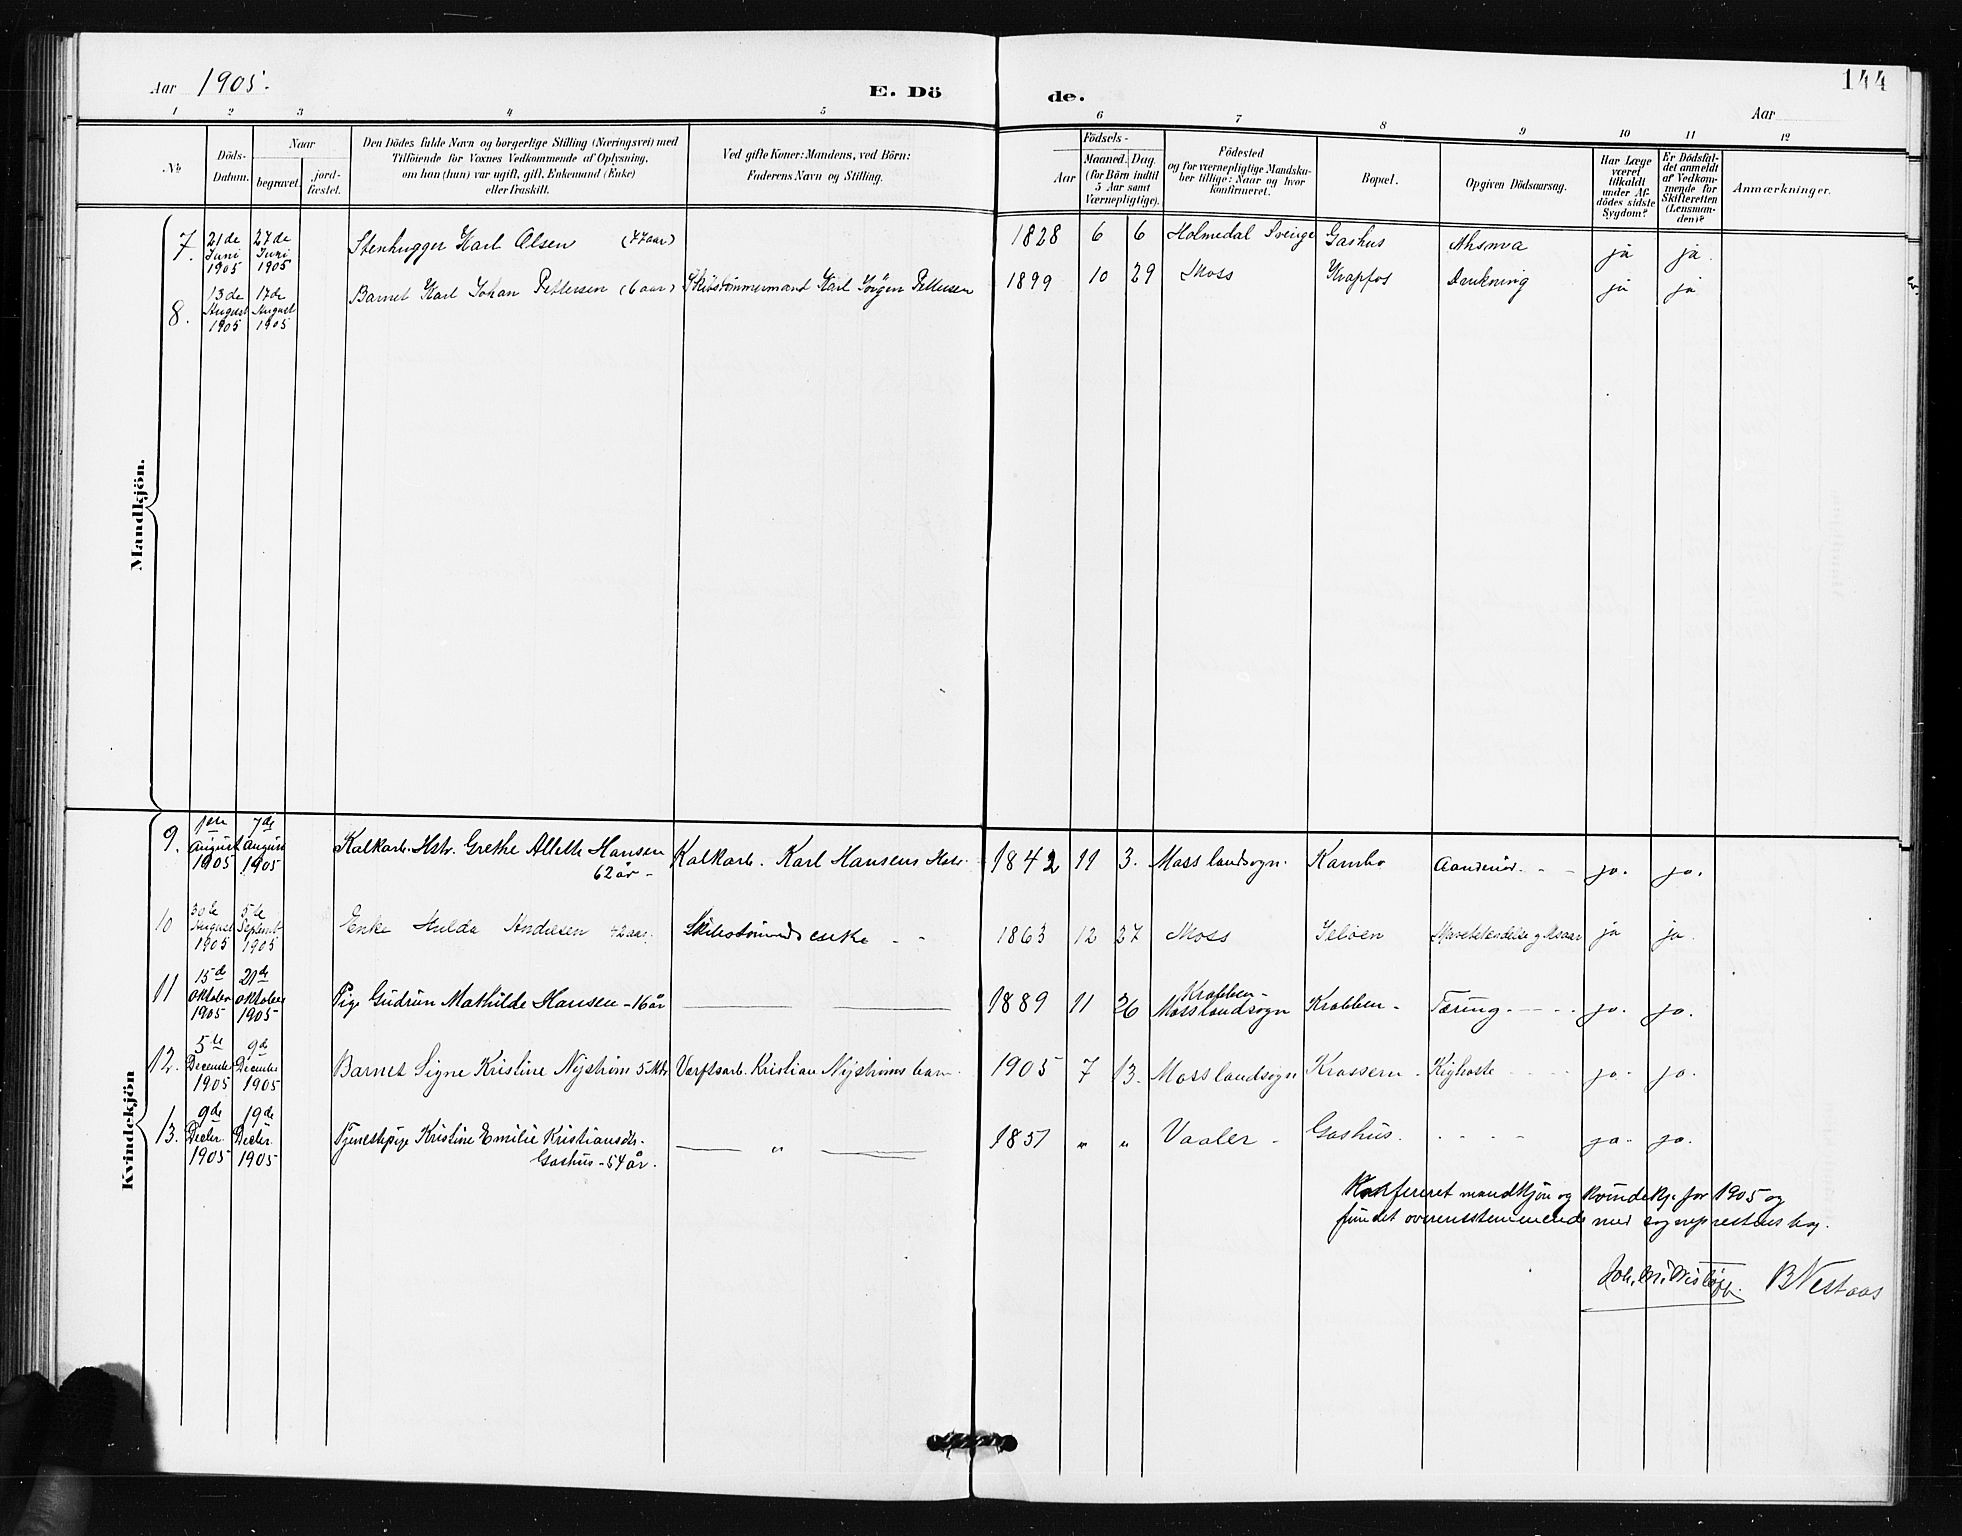 144
Aar 1905.
E. Dö de.
Aar
1 2 3 4 5 6 7 8 9 10 11 12
No.
Döds-
Datum.
Naar
begravet.
jord-
fæstet.
Den Dödes fulde Navn og borgerlige Stilling (Næringsvei) med
Tilföiende for Voxnes Vedkommende af Oplysning,
om han (hun) var ugift, gift, Enkemand (Enke)
eller fraskilt.
Ved gifte Koner: Mandens, ved Börn:
Faderens Navn og Stilling.
Födsels-
Aar
Maaned. Dag.
(for Börn indtil
5 Aar samt
Værnepligtige).
Födested
og for værnepligtige Mandska-
ber tillige: Naar og hvor
konfirmeret.
Bopæl.
Opgiven Dödsaarsag.
Har Læge
været
tilkaldt
under Af-
dödes sidste
Sygdom?
Er Dödsfal-
det anmeldt
af Vedkom-
mende for
Skifteretten
(Lensman-
den)?
Anmærkninger.
Mandkjön.
7. 21de Juni 1905 27de Juni 1905 Stenhugger Karl Olsen (77 aar) 1828 6 6 Holmedal Sverige Gashus ja ja.
8. 13de August 1905 17de August 1905 Barnet Karl Johan Pettersen (6 aar) Skibstömmermand Karl Jörgen Pettersen 1899 10 29 Moss Krapfos Drukning ja ja
Kvindekjön
9. 1ste August 1905 7de August 1905 Kalkarb. Hstr. Grethe Allette Hansen Kalkarb. Karl Hansens Hstr. 1842 11 3. Moss landsogn. Kambo Aandenöd. - - ja. ja.
62 år -
10 30te August 1905 5te Septemb 1905 Enke Hulda Andresen 42 aar. enke - - 1863 12 27 Moss Jelöen ja ja
11 15de Oktober 1905 20de Oktober 1905 Pige Gudrun Mathilde Hansen - 16 år 1889 11 26 Krabben - Moss landsogn Krabben - Tæring. - - - ja. ja.
12. 5te December 1905 9de December 1905 Barnet Signe Kristine Nyström 5 Mdr Værftsarb. Kristian Nyströms barn. 1905 7 13. Moss landsogn Krossern. Kighoste - - - ja. ja.
13. 9de Decbr. 1905 19de Decbr. 1905 Tjenestepige Kristine Emilie Kristiansdtr. " 1851 " " Vaaler - Gashus. - - - - ja. ja.
Gashus - 54 år.
Konfereret mandkjön og kvindekj. for 1905 og
fundet overensstemmende med sogneprestens bog.
B Nestaas